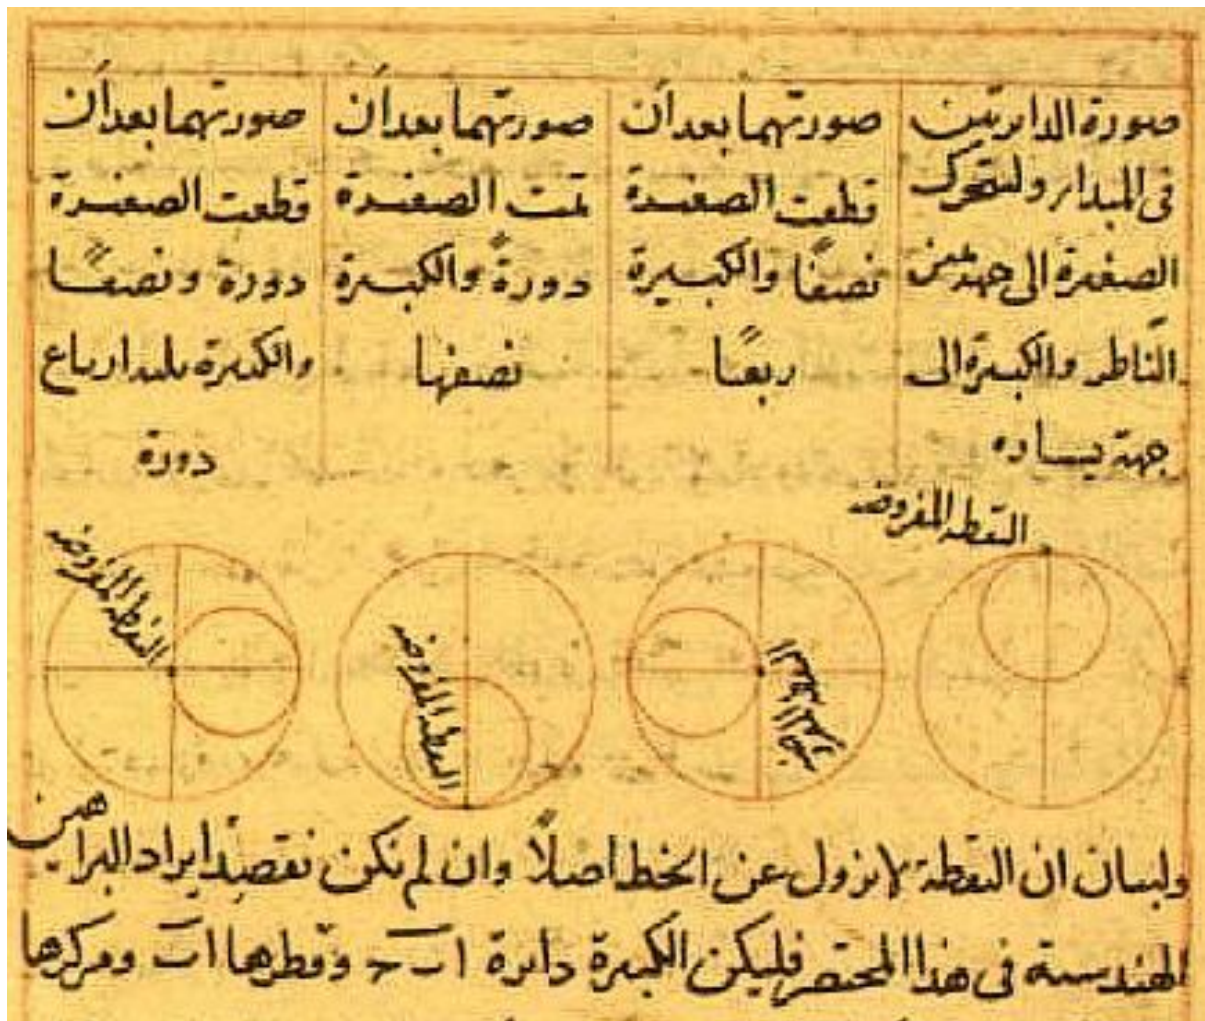 صورة الدائرتين
في المبدا ولتتحرك
الصغيرة الى جهة يمين
الناظر والكبيرة الى
جهة يساره
صورتهما بعد أن
قطعت الصغيرة
نصفًا والكبيرة
ربعًا
صورتهما بعد أن
تمت الصغيرة
دورةً والكبيرة
نصفها
صورتهما بعد أن
قطعت الصغيرة
دورة ونصفًا
والكبيرة ثلثة ارباع
دورة
النقطة المفروضة
النقطة المفروضة
النقطة المفروضة
النقطة المفروضة
ولبيان ان النقطة لا تزول عن الخط اصلاً وان لم نكن نقصد ايراد البراهين
الهندسية في هذا المختصر فليكن الكبيرة دائرة ا ب ج وقطرها ا ب ومركزها